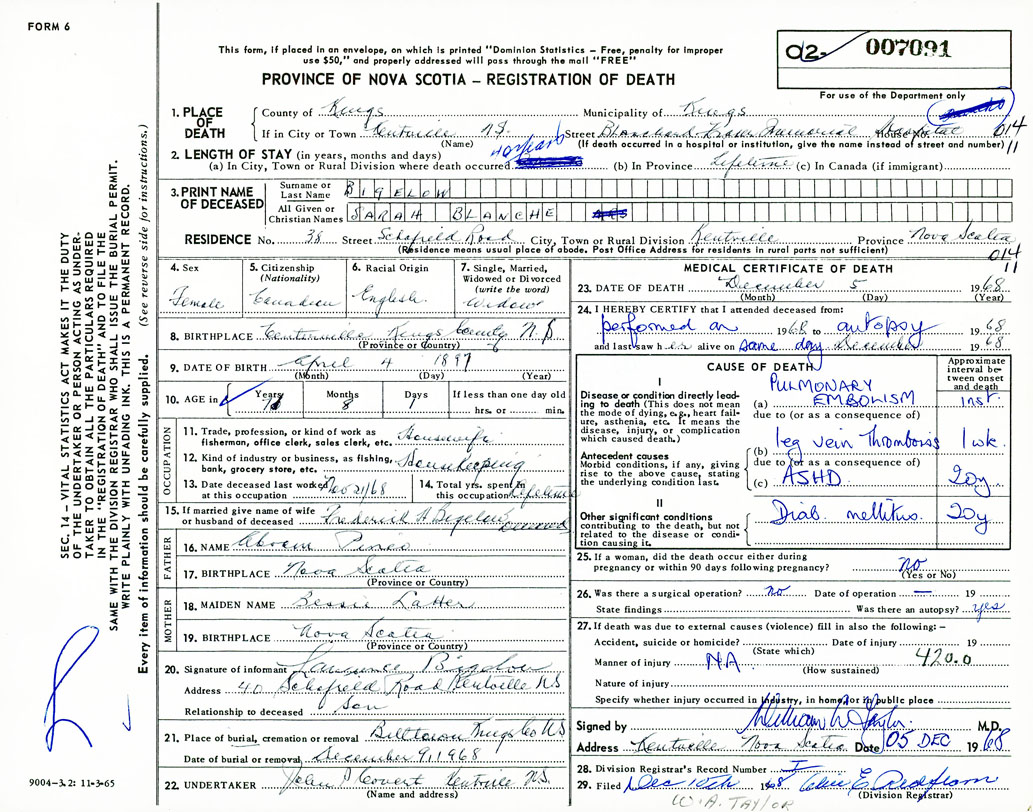 FORM 6
02- 007091
This form, if placed in an envelope, on which is printed "Dominion Statistics – Free, penalty for improper
use $50," and properly addressed will pass through the mail "FREE"
PROVINCE OF NOVA SCOTIA – REGISTRATION OF DEATH
For use of the Department only
1. PLACE OF DEATH County of Kings Municipality of Kings
If in City or Town Kentville N.S. Street Blanchard Fraser Memorial Hospital 014
(Name) (If death occurred in a hospital or institution, give the name instead of street and number) 11
2. LENGTH OF STAY (in years, months and days) 40 years
(a) In City, Town or Rural Division where death occurred (b) In Province Lifetime (c) In Canada (if immigrant)
3. PRINT NAME OF DECEASED Surname or Last Name BIGELOW
All Given or Christian Names SARAH BLANCHE
RESIDENCE No. 38 Street Schofield Road City, Town or Rural Division Kentville Province Nova Scotia
(Residence means usual place of abode. Post Office Address for residents in rural parts not sufficient) 014
11
4. Sex Female
5. Citizenship (Nationality) Canadian
6. Racial Origin English
7. Single, Married, Widowed or Divorced (write the word) Widow
8. BIRTHPLACE Centerville Kings County N.S.
(Province or Country)
9. DATE OF BIRTH April 4 1897
(Month) (Day) (Year)
10. AGE in Years 71 Months 8 Days 1 If less than one day old
hrs. or min.
OCCUPATION
11. Trade, profession, or kind of work as fisherman, office clerk, sales clerk, etc. Housewife
12. Kind of industry or business, as fishing, bank, grocery store, etc. Housekeeping
13. Date deceased last worked at this occupation Nov 21/68
14. Total yrs. spent in this occupation Lifetime
15. If married give name of wife or husband of deceased Frederick H Bigelow
FATHER
16. NAME Abram Pineo
17. BIRTHPLACE Nova Scotia
(Province or Country)
MOTHER
18. MAIDEN NAME Bessie
19. BIRTHPLACE Nova Scotia
(Province or Country)
20. Signature of informant Laurence Bigelow
Address 40 Schofield Road Kentville NS
Relationship to deceased Son
21. Place of burial, cremation or removal Billtown Kings Co NS
Date of burial or removal December 9, 1968
22. UNDERTAKER John Covert Kentville N.S.
(Name and address)
MEDICAL CERTIFICATE OF DEATH
23. DATE OF DEATH December 5 1968
(Month) (Day) (Year)
24. I HEREBY CERTIFY that I attended deceased from:
performed an 1968 to autopsy 1968
and last saw her alive on same day December 1968
CAUSE OF DEATH
Approximate interval between onset and death
I
Disease or condition directly leading to death (This does not mean the mode of dying, e.g., heart failure, asthenia, etc. It means the disease, injury, or complication which caused death.)
(a) PULMONARY EMBOLISM inst.
due to (or as a consequence of)
(b) leg vein Thrombosis 1 wk.
Antecedent causes
Morbid conditions, if any, giving rise to the above cause, stating the underlying condition last.
due to (or as a consequence of)
(c) ASHD 20y
II
Other significant conditions
contributing to the death, but not related to the disease or condition causing it.
Diab. mellitus. 20y
25. If a woman, did the death occur either during
pregnancy or within 90 days following pregnancy? no
(Yes or No)
26. Was there a surgical operation? no Date of operation — 19
State findings Was there an autopsy? yes
27. If death was due to external causes (violence) fill in also the following: –
Accident, suicide or homicide? Date of injury 19
(State which)
Manner of injury NA 420.0
(How sustained)
Nature of injury
Specify whether injury occurred in industry, in home, or in public place
Signed by William A Taylor M.D.
Address Kentville Nova Scotia Date 05 DEC 1968
28. Division Registrar's Record Number
29. Filed Dec 10th 1968
(Division Registrar)
W. A. TAYLOR
SEC. 14 – VITAL STATISTICS ACT MAKES IT THE DUTY
OF THE UNDERTAKER OR PERSON ACTING AS UNDER-
TAKER TO OBTAIN ALL THE PARTICULARS REQUIRED
IN THE "REGISTRATION OF DEATH" AND TO FILE THE
SAME WITH THE DIVISION REGISTRAR WHO SHALL ISSUE THE BURIAL PERMIT.
WRITE PLAINLY WITH UNFADING INK. THIS IS A PERMANENT RECORD.
Every item of information should be carefully supplied. (See reverse side for instructions.)
9004–3.2: 11-3-65